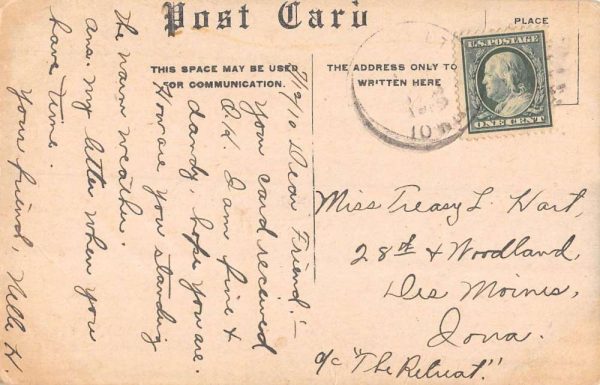 Post Card
PLACE
THIS SPACE MAY BE USED
FOR COMMUNICATION.
THE ADDRESS ONLY TO
WRITTEN HERE
U.S. POSTAGE
ONE CENT
10
7/19/10 Dear Friend:—
Your card received
O.K. I am fine &
dandy, hope you are.
How are you standing
the warm weather.
Ans. my letter when you
have time.
Your friend, Nelle H.
Miss Treasy L. Hart,
28th & Woodland,
Des Moines,
Iowa.
c/o "The Retreat."